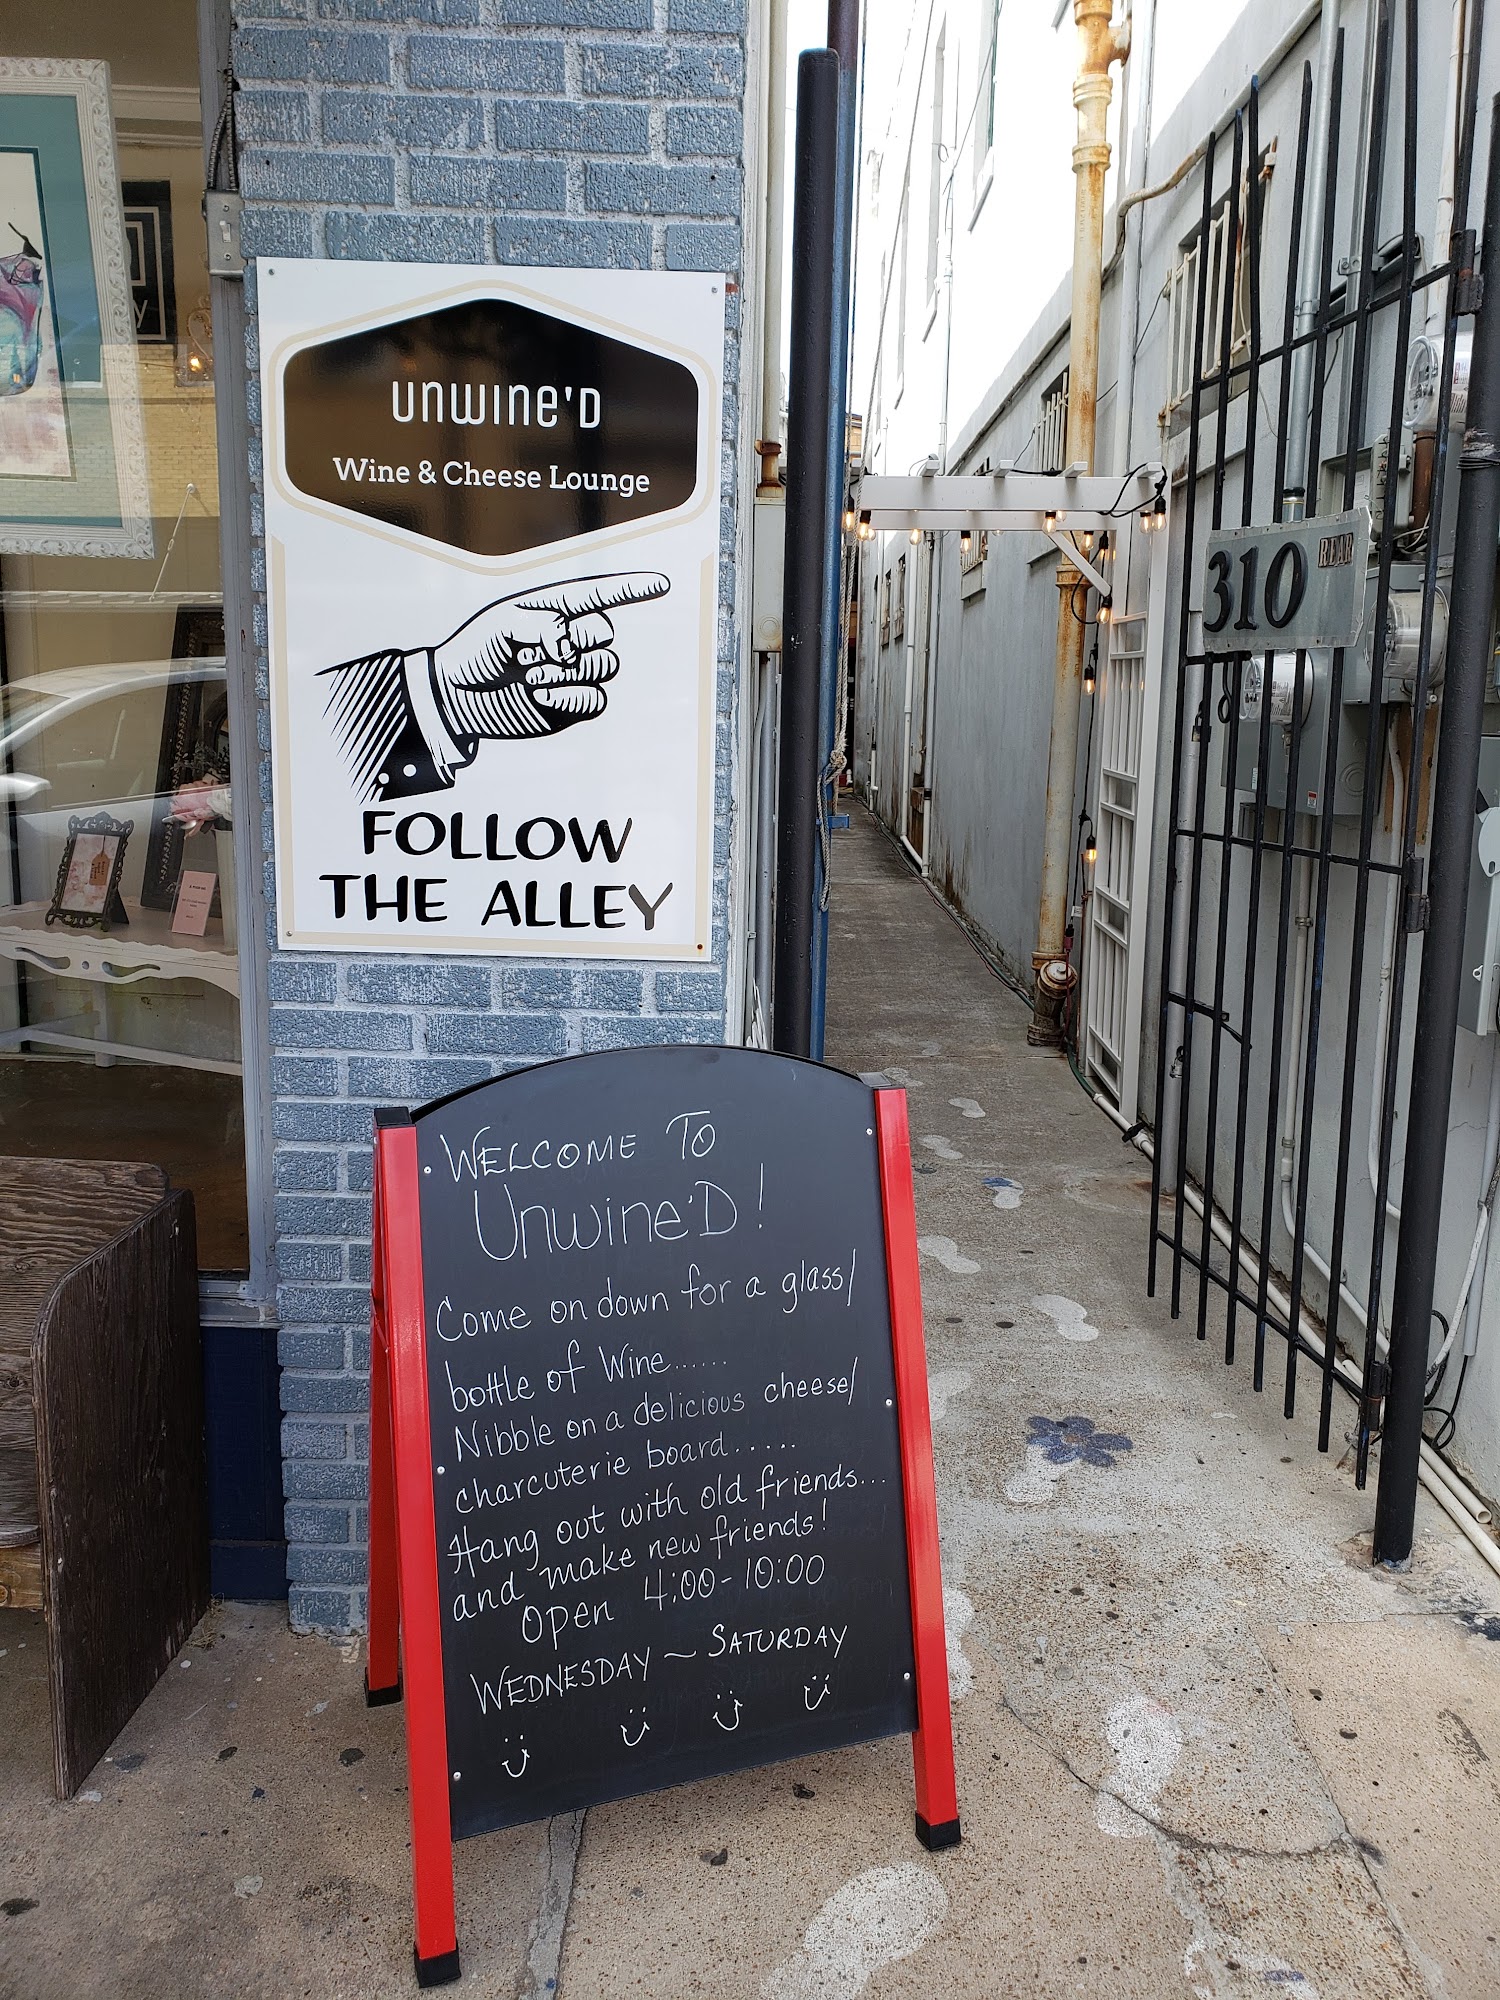 UNWINE'D
Wine & Cheese Lounge
FOLLOW
THE ALLEY
310 REAR
WELCOME TO
Unwine'D!
Come on down for a glass/
bottle of Wine......
Nibble on a delicious cheese/
charcuterie board.....
Hang out with old friends...
and make new friends!
Open 4:00-10:00
WEDNESDAY ~ SATURDAY